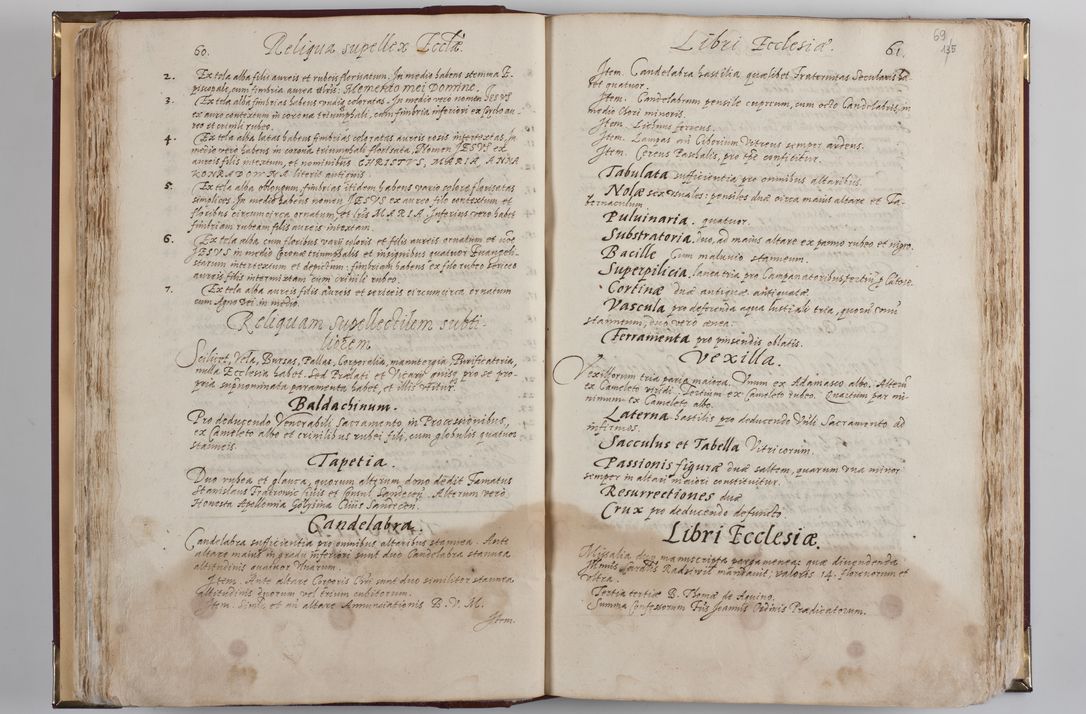 60. Reliqua supellex Eccl̃æ
2. Ex tela alba filis aureis et rubeis florisatum. In medio habens stemma E-
piscopale, cum fimbria aurea: Memento mei Domine.
3. Ex tela alba fimbrias habens varie coloratas. In medio vero nomen JESVS
ex auro contextum in corona triumphali, cum fimbria inferiori ex serico au-
reo et crinili rubeo.
4. Ex tela alba latas habens fimbrias coloratas aureis rosis intertextas, in
medio vero habens in corona triumphali florisata, Nomen JESVS ex
aureis filis intextum, et nominibus CHRISTVS, MARIA, ANNA
KONRADOWNA literis
5. Ex tela alba oblongum, fimbrias itidem habens vario colore florisatas
simplices. In medio habens nomen JESVS ex aureo filo contextum et
floribus circumcirca ornatum, et MARIA. Inferius vero habet
fimbriam rubeam filis aureis intextam.
6. Ex tela alba cum floribus varii coloris et filis aureis ornatum et
JESVS in medio Coronæ triumphalis et insignibus quatuor Evangeli-
starum intertextum et depictum: fimbriam habens ex filo rubeo sericeo
aureis filis intermixtam cum crinili rubeo.
7. Ex tela alba aureis filis aureis et sericeis circumcirca ornatum
cum Agno Dei in medio.
Reliquam supellectilem subti-
liorem
Scilicet, Vela, Bursas, Pallas, Corporalia, manutergia, Purificatoria,
nulla Ecclesia habet. Sed Prælati et Vicarii pro se pro-
pria supnominata paramenta habet, et illis
Baldachinum.
Pro deducendo Venerabili Sacramento in Processionibus,
ex Cameleto albo et crinilibus rubei fili, cum globulis quatuor
stanneis.
Tapetia.
Duo rubea et glauca, quorum alterum dono dedit Famatus
Stanislaus Frącovic Civis et Consul Sandecen. Alterum vero
Honesta Apollonia Civis Sandecen.
Candelabra.
Candelabra sufficientia pro omnibus altaribus stannea. Ante
altare maius in gradu inferiori sunt duo Candelabra stannea
altitudinis quatuor Ulnarum.
Item. Ante altare Corporis Chri sunt duo similiter stannea
altitudinis quorum vel trium cubitorum.
Item. Simile et an altare Annunciationis B. V. M.
Item.
Libri Ecclesiæ. 61.
69
135
Item. Candelabra hastilia, quælibet Fraternitas Secularis ha-
bet quatuor.
Item. Candelabrum pensile cupreum, cum octo Candelabris, in
medio Chori minoris.
Item. Lichnus ferreus.
Item. Lampas an Ciborium Vitreus semper ardens.
Item. Cereus Paschalis, pro tpe conficitur.
Tabulata sufficientia, pro omnibus altaribus.
Nolæ sex usuales: pensiles duæ circa maius altare et Ta-
bernaculum.
Puluinaria. quatuor.
Substratoria. duo, ad maius altare ex panno rubeo et nigro.
Bacille Cum maluvio stanneum.
Superpilicia, lanea tria pro Campanatoribus
Cortinæ duæ antiquæ
Vascula pro deferenda aqua lustiali tria, quorum unum
stanneum, duo vero ænea.
Ferramenta pro pinsendis oblatis.
Vexilla.
Vexillorum tria paria maiora. Unum ex Adamasco albo. Alterum
ex Cameleto viridi. Tertium ex Cameleto rubeo. Quartum par mi-
nimum ex Cameleto albo.
Laterna hastilis pro deducendo Vnli Sacramento ad
infirmos.
Sacculus et Tabella Vitricorum.
Passionis figuræ duæ saltem, quarum una minor
semper in altari maiori constituitur.
Resurrectiones duæ
Crux pro deducendo defuncto
Libri Ecclesiæ.
Missalia duo manuscripta pargamenea: quæ divendenda
Illmus Cardlis Radzivil mandauit; valoris 14. florenorum et
vltra.
Tertia tertiæ B. Thomæ de Aquino.
Summa Confessorum Fris Joannis Ordinis Prædicatorum.